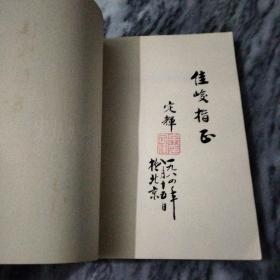 佳峻指正
定辉
一九八四年
八月十五日
於北京